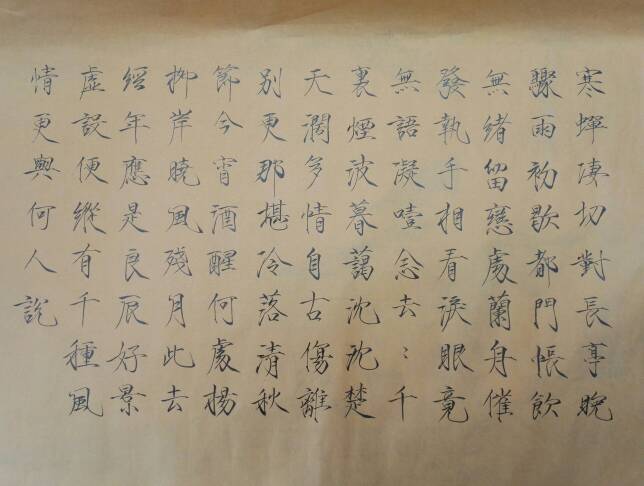 寒蟬凄切對長亭晚
驟雨初歇都門帳飲
無緒留戀處蘭身催
發執手相看淚眼竟
無語凝噎念去〻千
裏煙波暮藹沈沈楚
天濶多情自古傷離
別更那堪冷落清秋
節今宵酒醒何處楊
柳岸曉風殘月此去
經年應是良辰好景
虛設便縱有千種風
情更與何人說